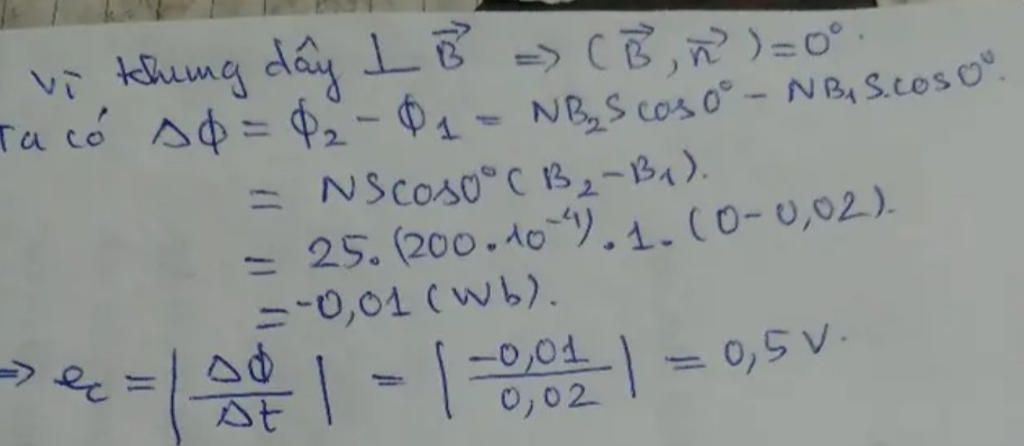 Vì khung dây ⊥ B⃗ => (B⃗, n⃗) = 0°.
Ta có Δϕ = ϕ₂ - ϕ₁ = NB₂S cos0° - NB₁S.cos0°.
= NScos0°(B₂-B₁).
= 25.(200.10⁻⁴).1.(0-0,02).
= -0,01 (Wb).
=> e_c = |Δϕ/Δt| = |-0,01/0,02| = 0,5 V.